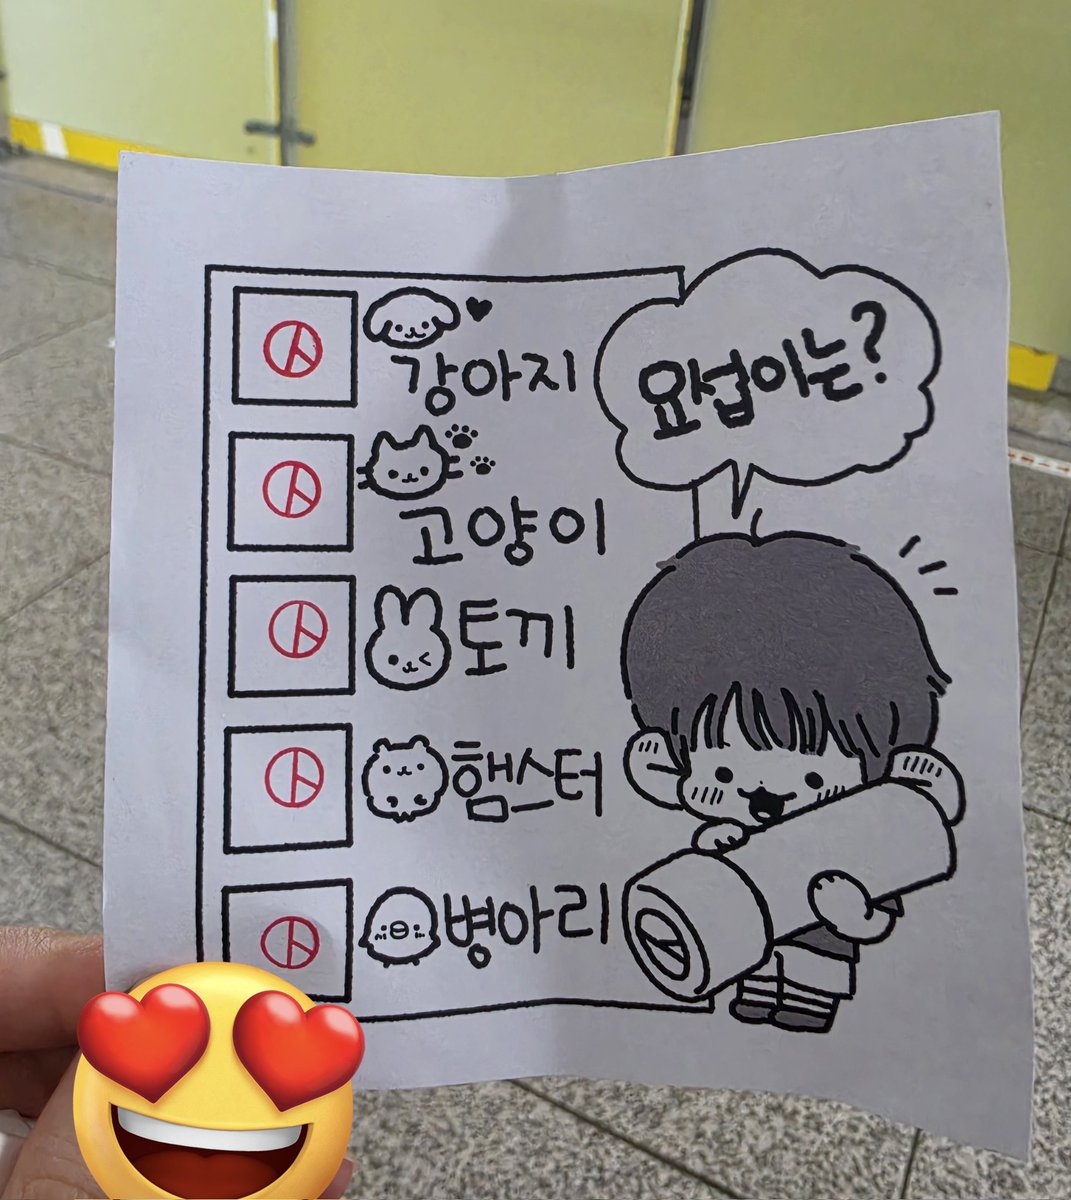 요섭이는?
강아지
고양이
토끼
햄스터
병아리